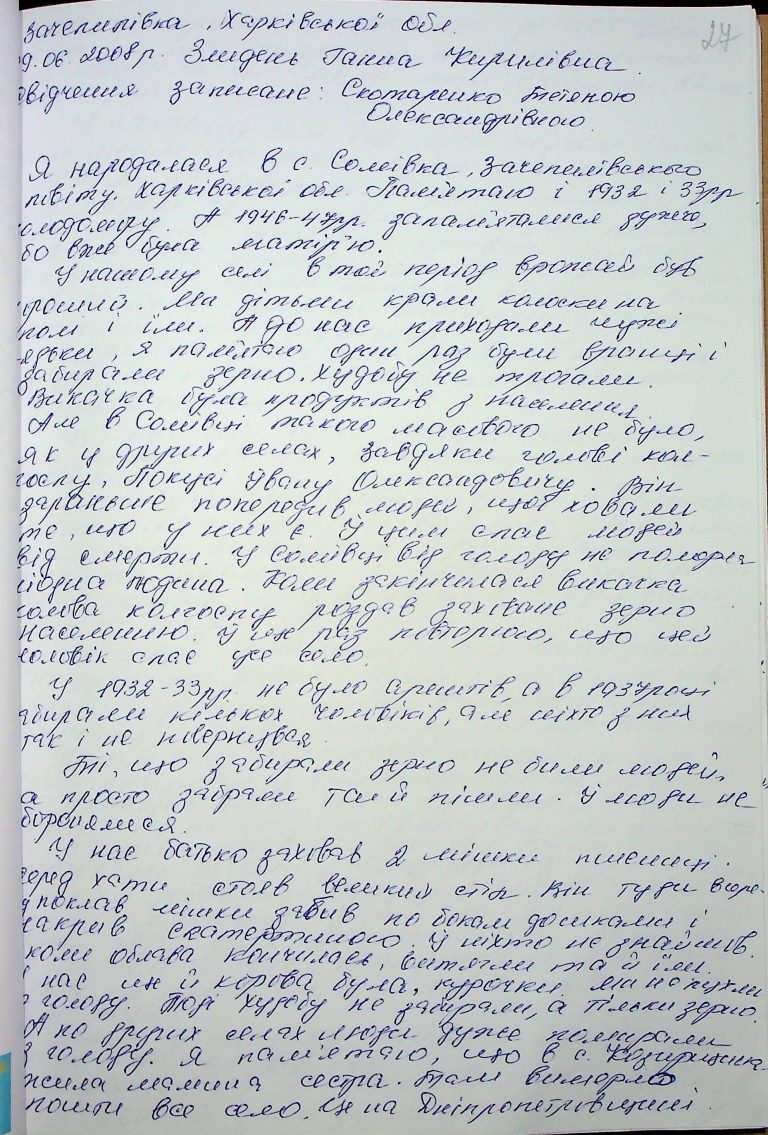 зачепилівка, Харківської обл.
27
9.06.2008р. Змидень Ганна Кирилівна.
свідчення записане: Скотаренко Тетяною
Олександрівною.
Я народалася в с. Соліївка, Зачепилівського
повіту. Харківської обл. Пам'ятаю і 1932 і 33рр
голодомору. А 1946-47рр. запам'яталися дужче,
бо вже була матір'ю.
У нашому селі в той період врожай був
хороший. Ми дітьми крали колоски на
полі і їли. А до нас приходили чужі
дядьки, я пам'ятаю один раз були вранці і
забирали зерно. Худобу не трогали.
Викачка була продуктів з населення
Але в Соліївці такого масового не було,
як у других селах, завдяки голові кол-
госпу, Покусі Івану Олександровичу. Він
зараньше попередив людей, щоб ховали
те, що у них є. І цим спас людей
від смерти. У Соліївці від голоду не померла
жодна людина. Коли закінчилася викачка
голова колгоспу роздав заховане зерно
населенню. І ще раз повторюю, що цей
чоловік спас усе село.
У 1932-33рр. не було арештів, а в 1937році
забирали кількох чоловіків, але ніхто з них
так і не повернувся.
Ті, що забирали зерно не били людей,
а просто забрали та й пішли. І люди не
боронилися.
У нас батько заховав 2 мішки пшениці.
серед хати стояв великий стіл. Він туди всере-
д поклав мішки забив по бокам дошками і
накрив скатертиною. І ніхто не знайшов.
коли облава кончилась, витягли та й їли.
У нас ще й корова була, курочки ми не пухли
з голоду. Тоді худобу не забирали, а тільки зерно.
А по других селах люди дуже помирали
з голоду. Я пам'ятаю, що в с.
жила мамина сестра. Там вимерло
пошти все село. Це на Дніпропетровщині.